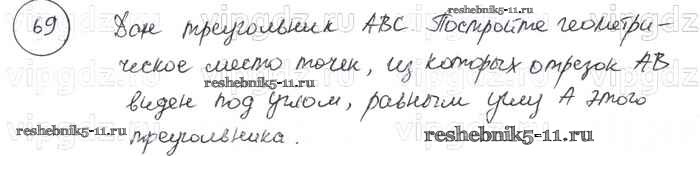 69 Дан треугольник ABC. Постройте геометри-
ческое место точек, из которых отрезок AB
reshebnik5-11.ru
виден под углом, равным углу A этого
reshebnik5-11.ru
треугольника.
reshebnik5-11.ru